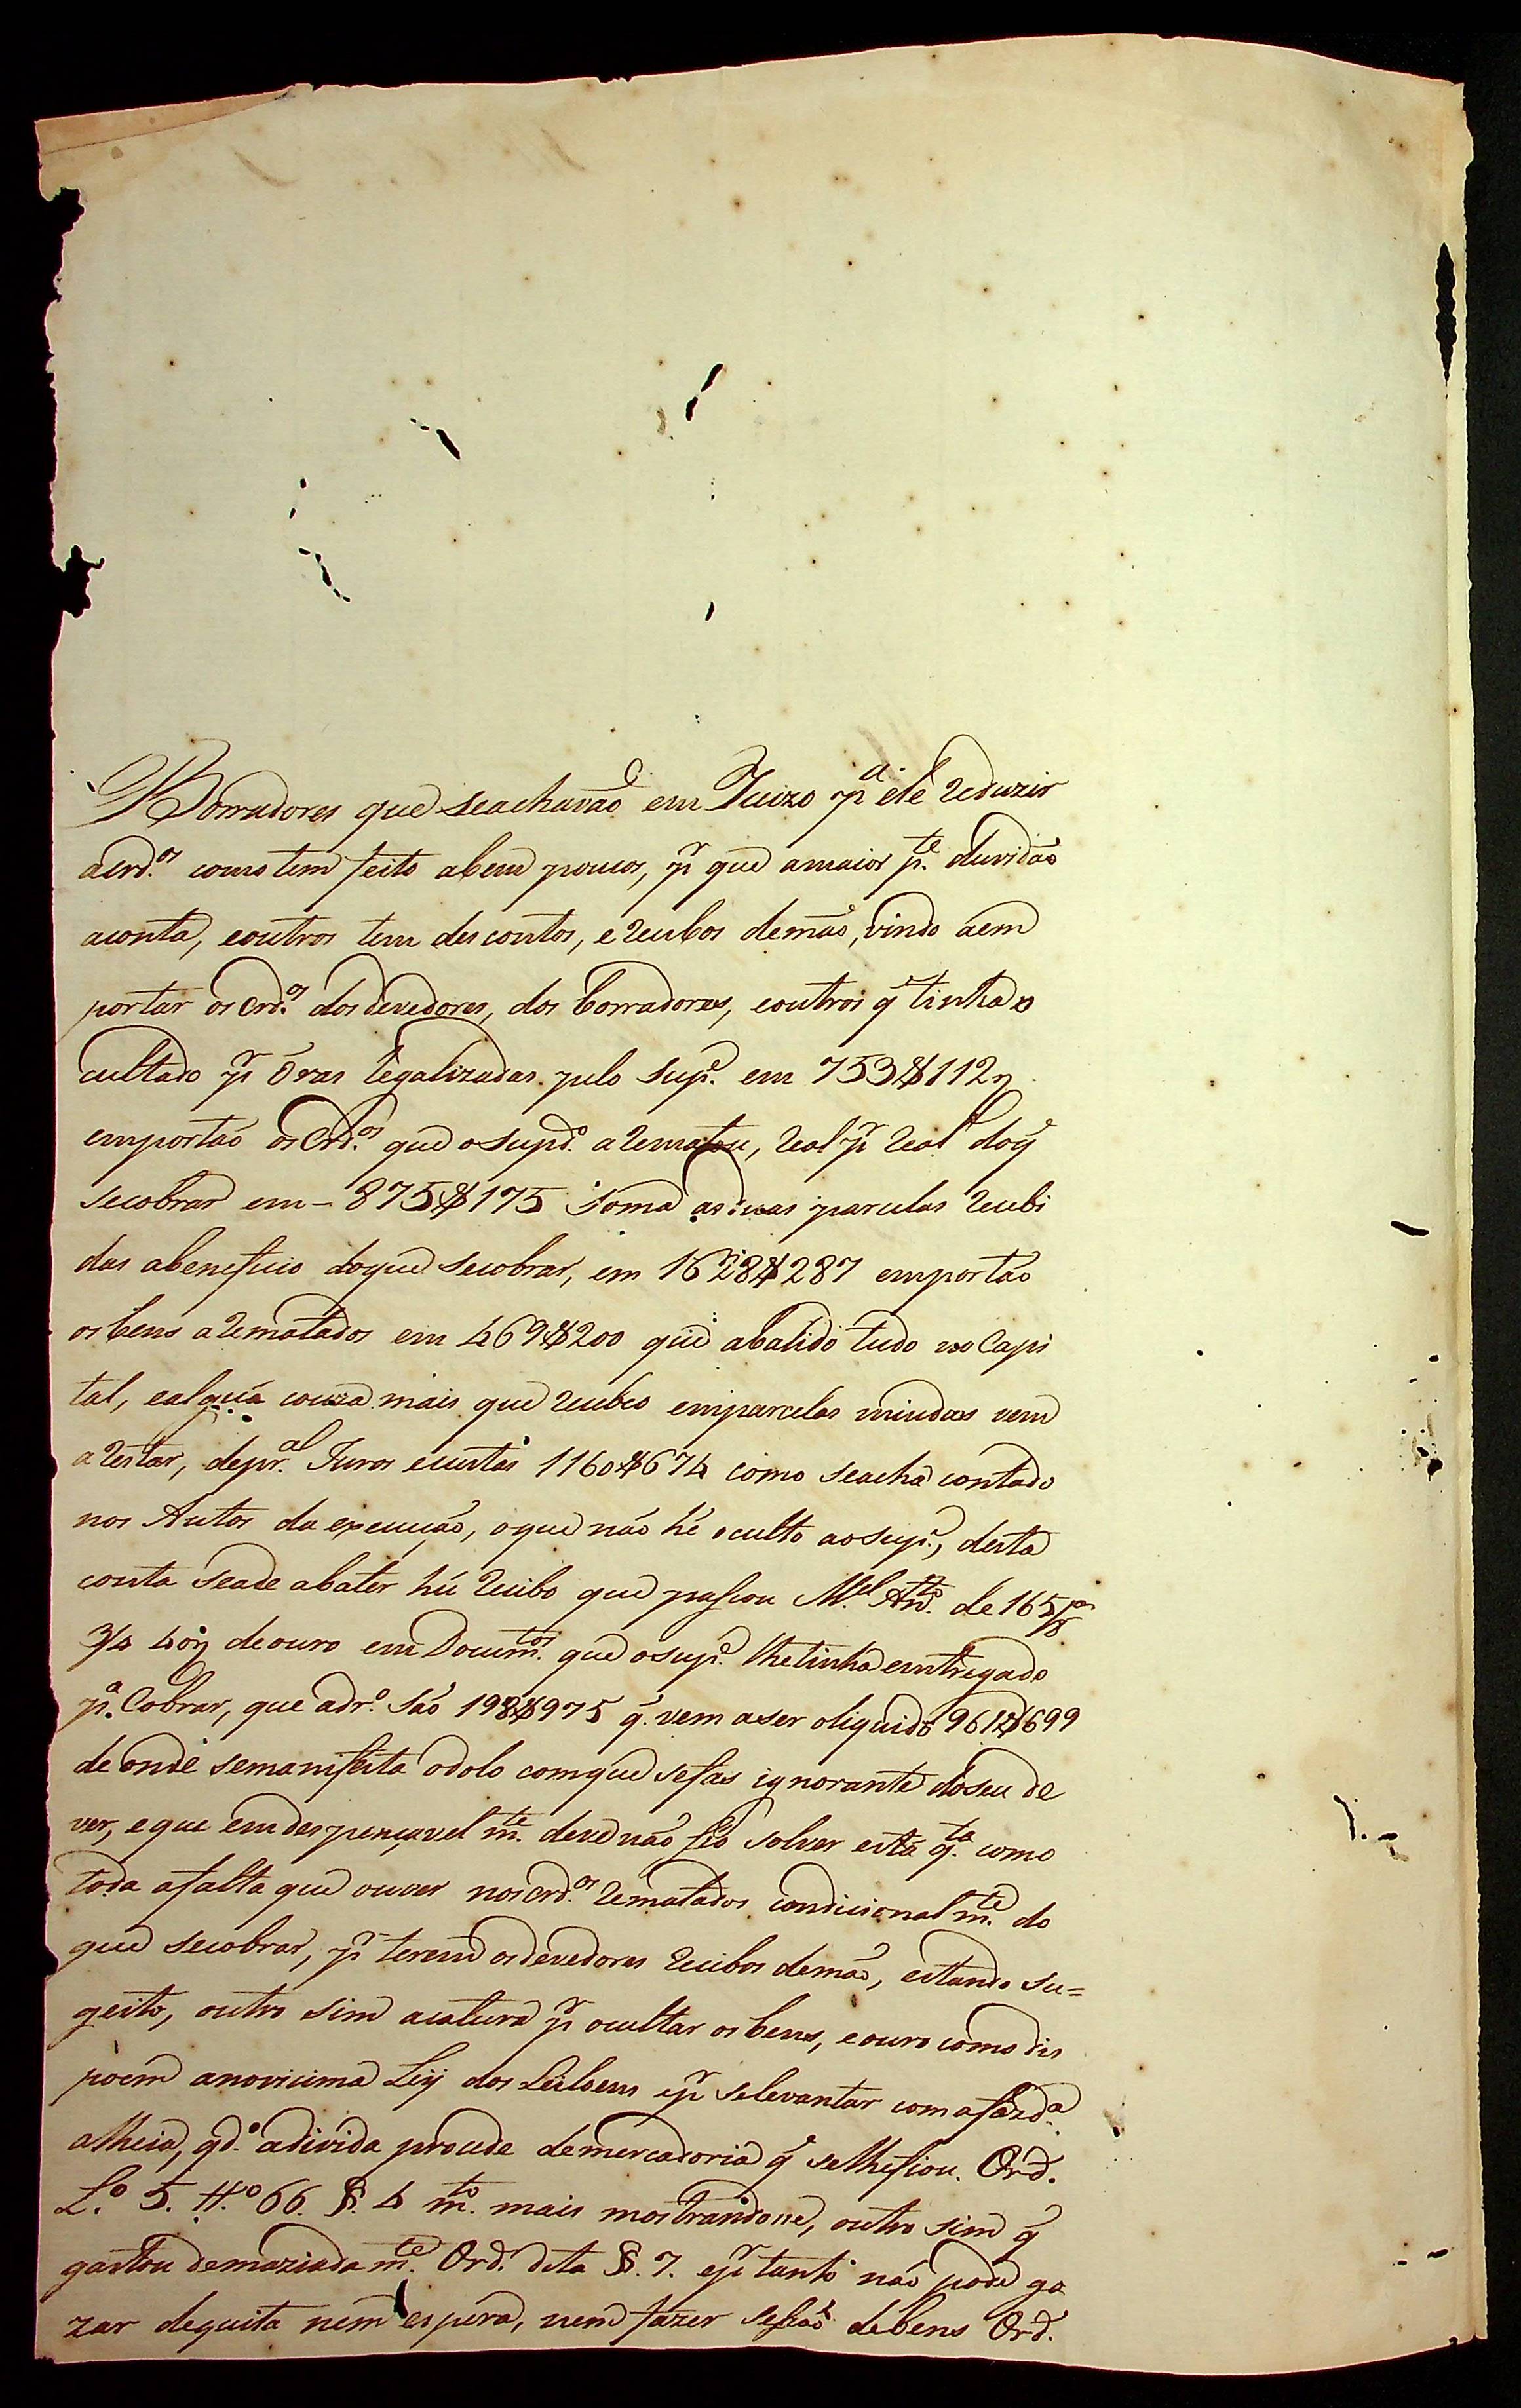 Borradores que seachavaõ em Juizo pª ele reduzir
acrdºs como tem feito abem poucos, pr que amaior pte duvidaõ
aconta, eoutros tem descontos, e recibos demaõ, vindo aem
portar os Crdºs dos devedores, dos borradores, eoutros q̃ tinha o
cultado pr oras legalizadas pelo supe em 753$112 r
emportaõ os Crdºs que o supdº a rematou, real pr real doq̃
secobrar em - 875$175 Soma as duas parcelas recebi
das abeneficio doque secobrar, em 1628$287 emportaõ
os bens a rematados em 469$200 que abatido tudo no Capi
tal, ealgũa couza mais que recebeo emparcelas miudas vem
a restar, depral Juros ecustas 1160$674 como seacha contado
nos Autos da execuçaõ, oque naõ hé oculto aosupe, desta
conta seade abater hũ recibo que passou Mel Antº de 165/8as
3/4 4 or de ouro em Documtos que osupe lhetinha entregado
pª Cobrar, que adrº saõ 198$975 q̃ vem aser oliquido 961$699
de onde semanifesta odolo comque sefas ignorante doseu de
ver, eque emdespençavel mte deve naõ só solver esta qta como
toda afalta que ouver nos crdºs rematados condicional mte do
que secobrar, pr terem osdevedores recibos demaõ, estando su=
geito, outro sim acatura pr ocultar os bens, eouro como dis
poem anovicima Ley dos Leiloens epr selevantar com afazdª
alheia, qdº adivida procede demercadoria q̃ selhefiou. Ord.
Lº 5. ttº 66. §. 4 mtº mais mostrandose, outro sim q̃
gastou demaziada mte Ord. dita §. 7. epr tanto naõ pode go
zar dequita nem espera, nem fazer sessaõ debens Ord.